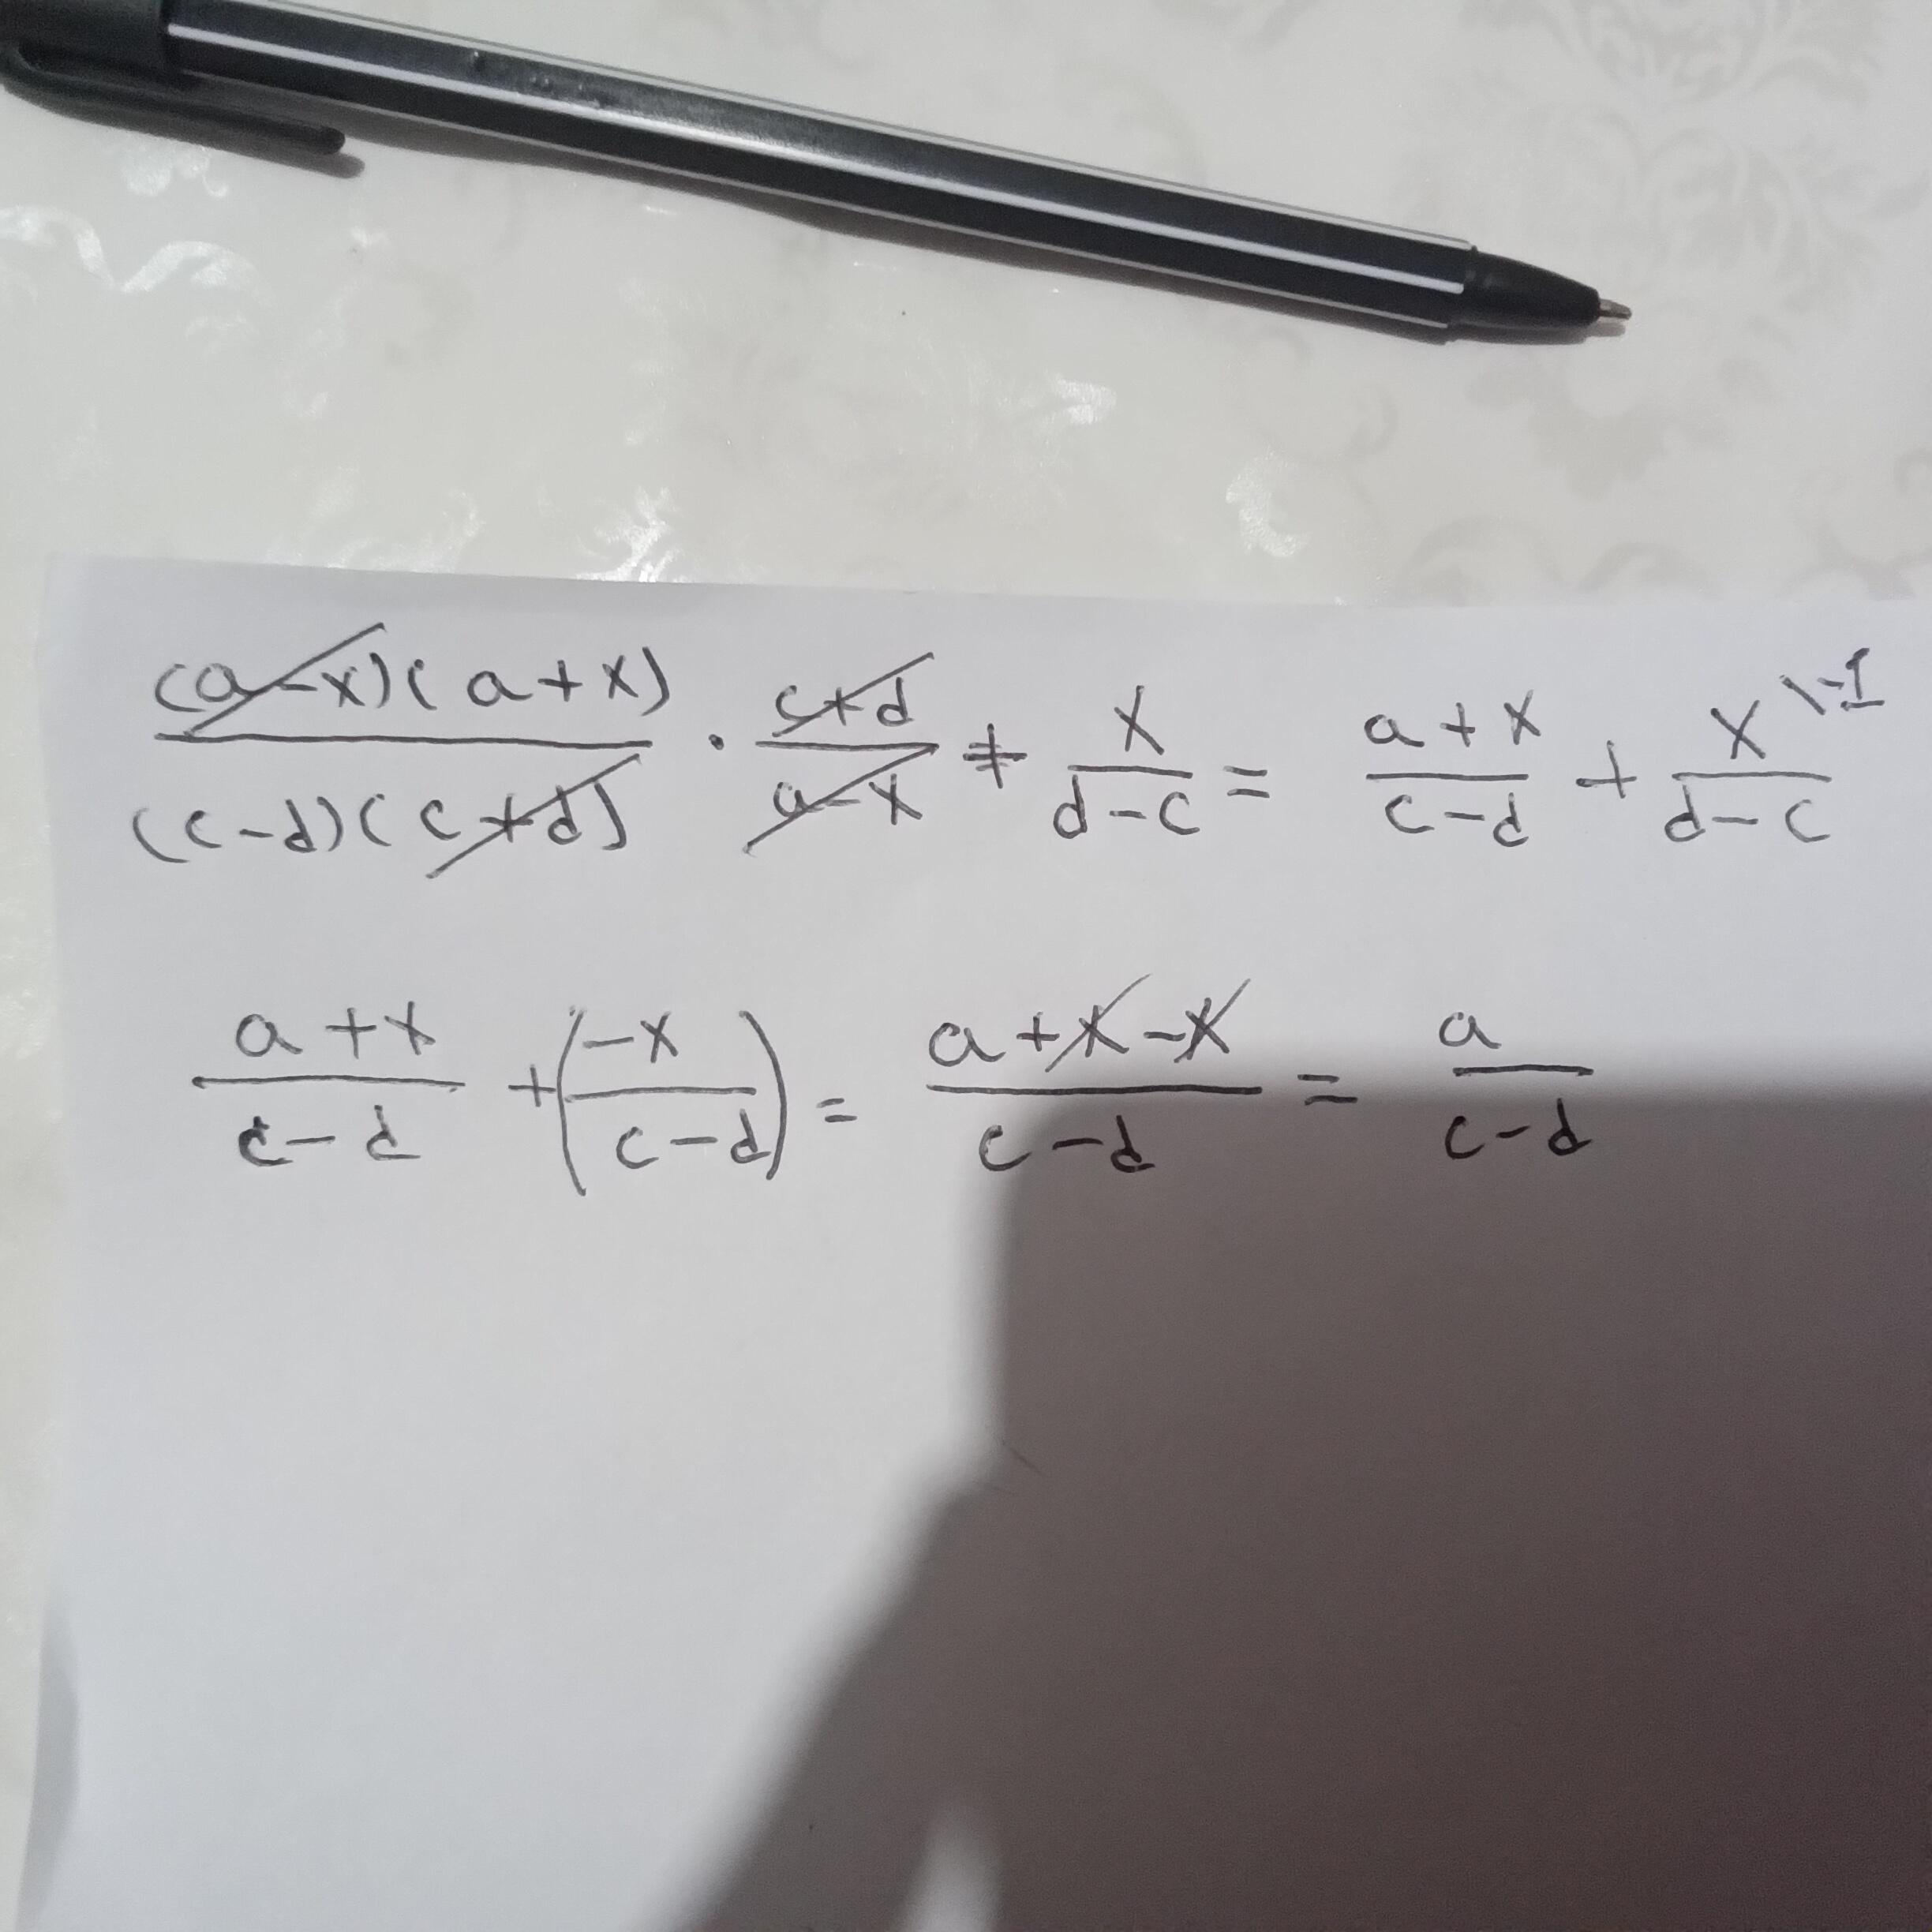 (a-x)(a+x)/(c-d)(c+d) · c+d/a-x + x/d-c = a+x/c-d + x\-1/d-c
a+x/c-d + (-x/c-d) = a+x-x/c-d = a/c-d